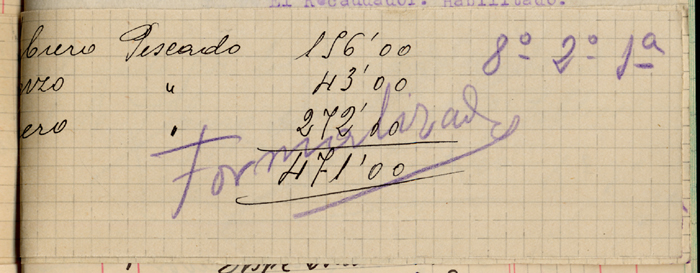 El Recaudador. Habilitado.
brero Pescado 156'00 8º 2º 1ª
rzo " 43'00
ero " 272'00
Formalizado
471'00